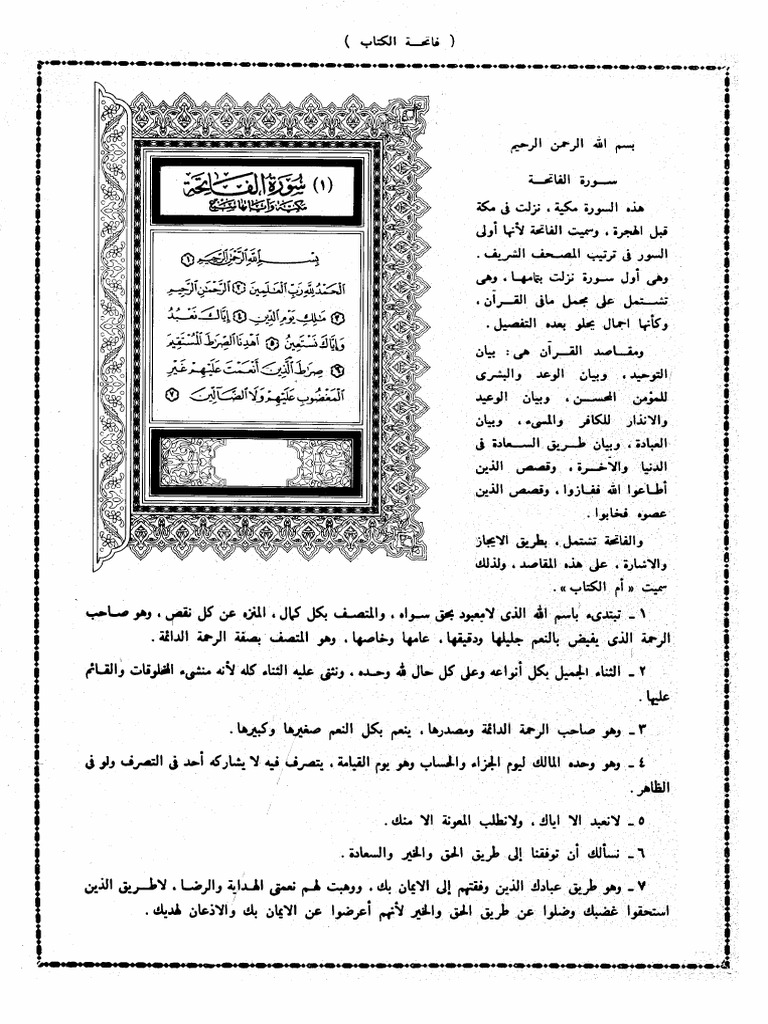 ( فاتحـة الكتاب )
بسم الله الرحمن الرحيم
سـورة الفاتحـة
هذه السورة مكية ، نزلت فى مكة
قبل الهجرة ، وسميت الفاتحة لأنها أولى
السور فى ترتيب المصحف الشريف .
وهى أول سورة نزلت بتمامها ، وهى
تشتمل على مجمل مافى القرآن ،
وكأنها اجمال يجلو بعده التفصيل .
ومقاصد القرآن هى : بيان
التوحيد ، وبيان الوعد والبشرى
للمؤمن المحسن ، وبيان الوعيد
والانذار للكافر والمسىء ، وبيان
العبادة ، وبيان طريق السعادة فى
الدنيا والآخرة ، وقصص الذين
أطاعوا الله ففازوا ، وقصص الذين
عصوه فخابوا .
والفاتحة تشتمل ، بطريق الايجاز
والاشارة ، على هذه المقاصد ، ولذلك
سميت « أم الكتاب » .
(١) سُورَةُ الفَاتِحَةِ
مكيّة وآياتها سَبع
بِسْمِ ٱللَّهِ ٱلرَّحْمَٰنِ ٱلرَّحِيمِ ١
ٱلْحَمْدُ لِلَّهِ رَبِّ ٱلْعَٰلَمِينَ ٢ ٱلرَّحْمَٰنِ ٱلرَّحِيمِ
٣ مَٰلِكِ يَوْمِ ٱلدِّينِ ٤ إِيَّاكَ نَعْبُدُ
وَإِيَّاكَ نَسْتَعِينُ ٥ ٱهْدِنَا ٱلصِّرَٰطَ ٱلْمُسْتَقِيمَ
٦ صِرَٰطَ ٱلَّذِينَ أَنْعَمْتَ عَلَيْهِمْ غَيْرِ
ٱلْمَغْضُوبِ عَلَيْهِمْ وَلَا ٱلضَّآلِّينَ ٧
١ ـ تبتدىء باسم الله الذى لامعبود بحق سواه ، والمتصف بكل كمال ، المنزه عن كل نقص ، وهو صاحب
الرحمة الذى يفيض بالنعم جليلها ودقيقها ، عامها وخاصها ، وهو المتصف بصفة الرحمة الدائمة .
٢ ـ الثناء الجميل بكل أنواعه وعلى كل حال لله وحده ، ونثنى عليه الثناء كله لأنه منشىء المخلوقات والقائم
عليها .
٣ ـ وهو صاحب الرحمة الدائمة ومصدرها ، ينعم بكل النعم صغيرها وكبيرها .
٤ ـ وهو وحده المالك ليوم الجزاء والحساب وهو يوم القيامة ، يتصرف فيه لا يشاركه أحد فى التصرف ولو فى
الظاهر .
٥ ـ لانعبد الا اياك ، ولانطلب المعونة الا منك .
٦ ـ نسألك أن توفقنا إلى طريق الحق والخير والسعادة .
٧ ـ وهو طريق عبادك الذين وفقتهم إلى الايمان بك ، ووهبت لهم نعمتى الهداية والرضا ، لاطريق الذين
استحقوا غضبك وضلوا عن طريق الحق والخير لأنهم أعرضوا عن الايمان بك والاذعان لهديك .